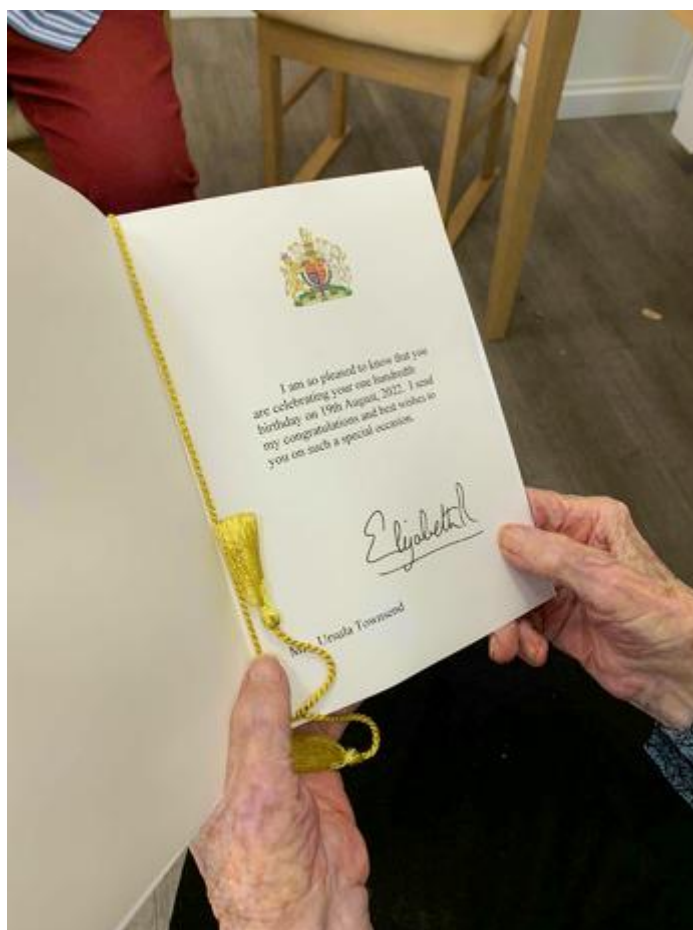 I am so pleased to know that you
are celebrating your one hundredth
birthday on 19th August, 2022. I send
my congratulations and best wishes to
you on such a special occasion.
Elizabeth R
Ursula Townsend